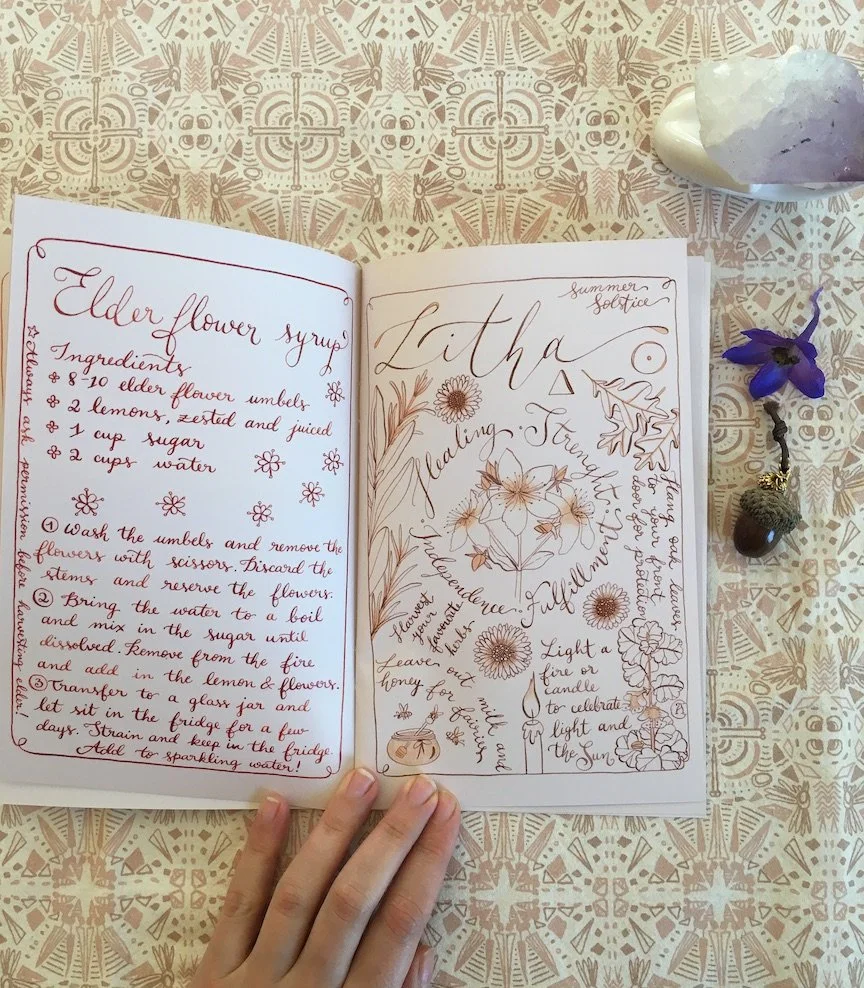 Elder flower syrup
Ingredients
8-10 elder flower umbels
2 lemons, zested and juiced
1 cup sugar
2 cups water
① Wash the umbels and remove the
flowers with scissors. Discard the
stems and reserve the flowers.
② Bring the water to a boil
and mix in the sugar until
dissolved. Remove from the fire
and add in the lemon & flowers.
③ Transfer to a glass jar and
let sit in the fridge for a few
days. Strain and keep in the fridge.
Add to sparkling water!
Always ask permission before harvesting elder!
Summer
Solstice
Litha
Healing · Strenght · Fulfillment · Independence ·
Hang oak leaves
to your front
door for protection
Harvest
your
favourite
herbs
Leave out milk and
honey for fairies
Light a
fire or
candle
to celebrate
light and
the Sun